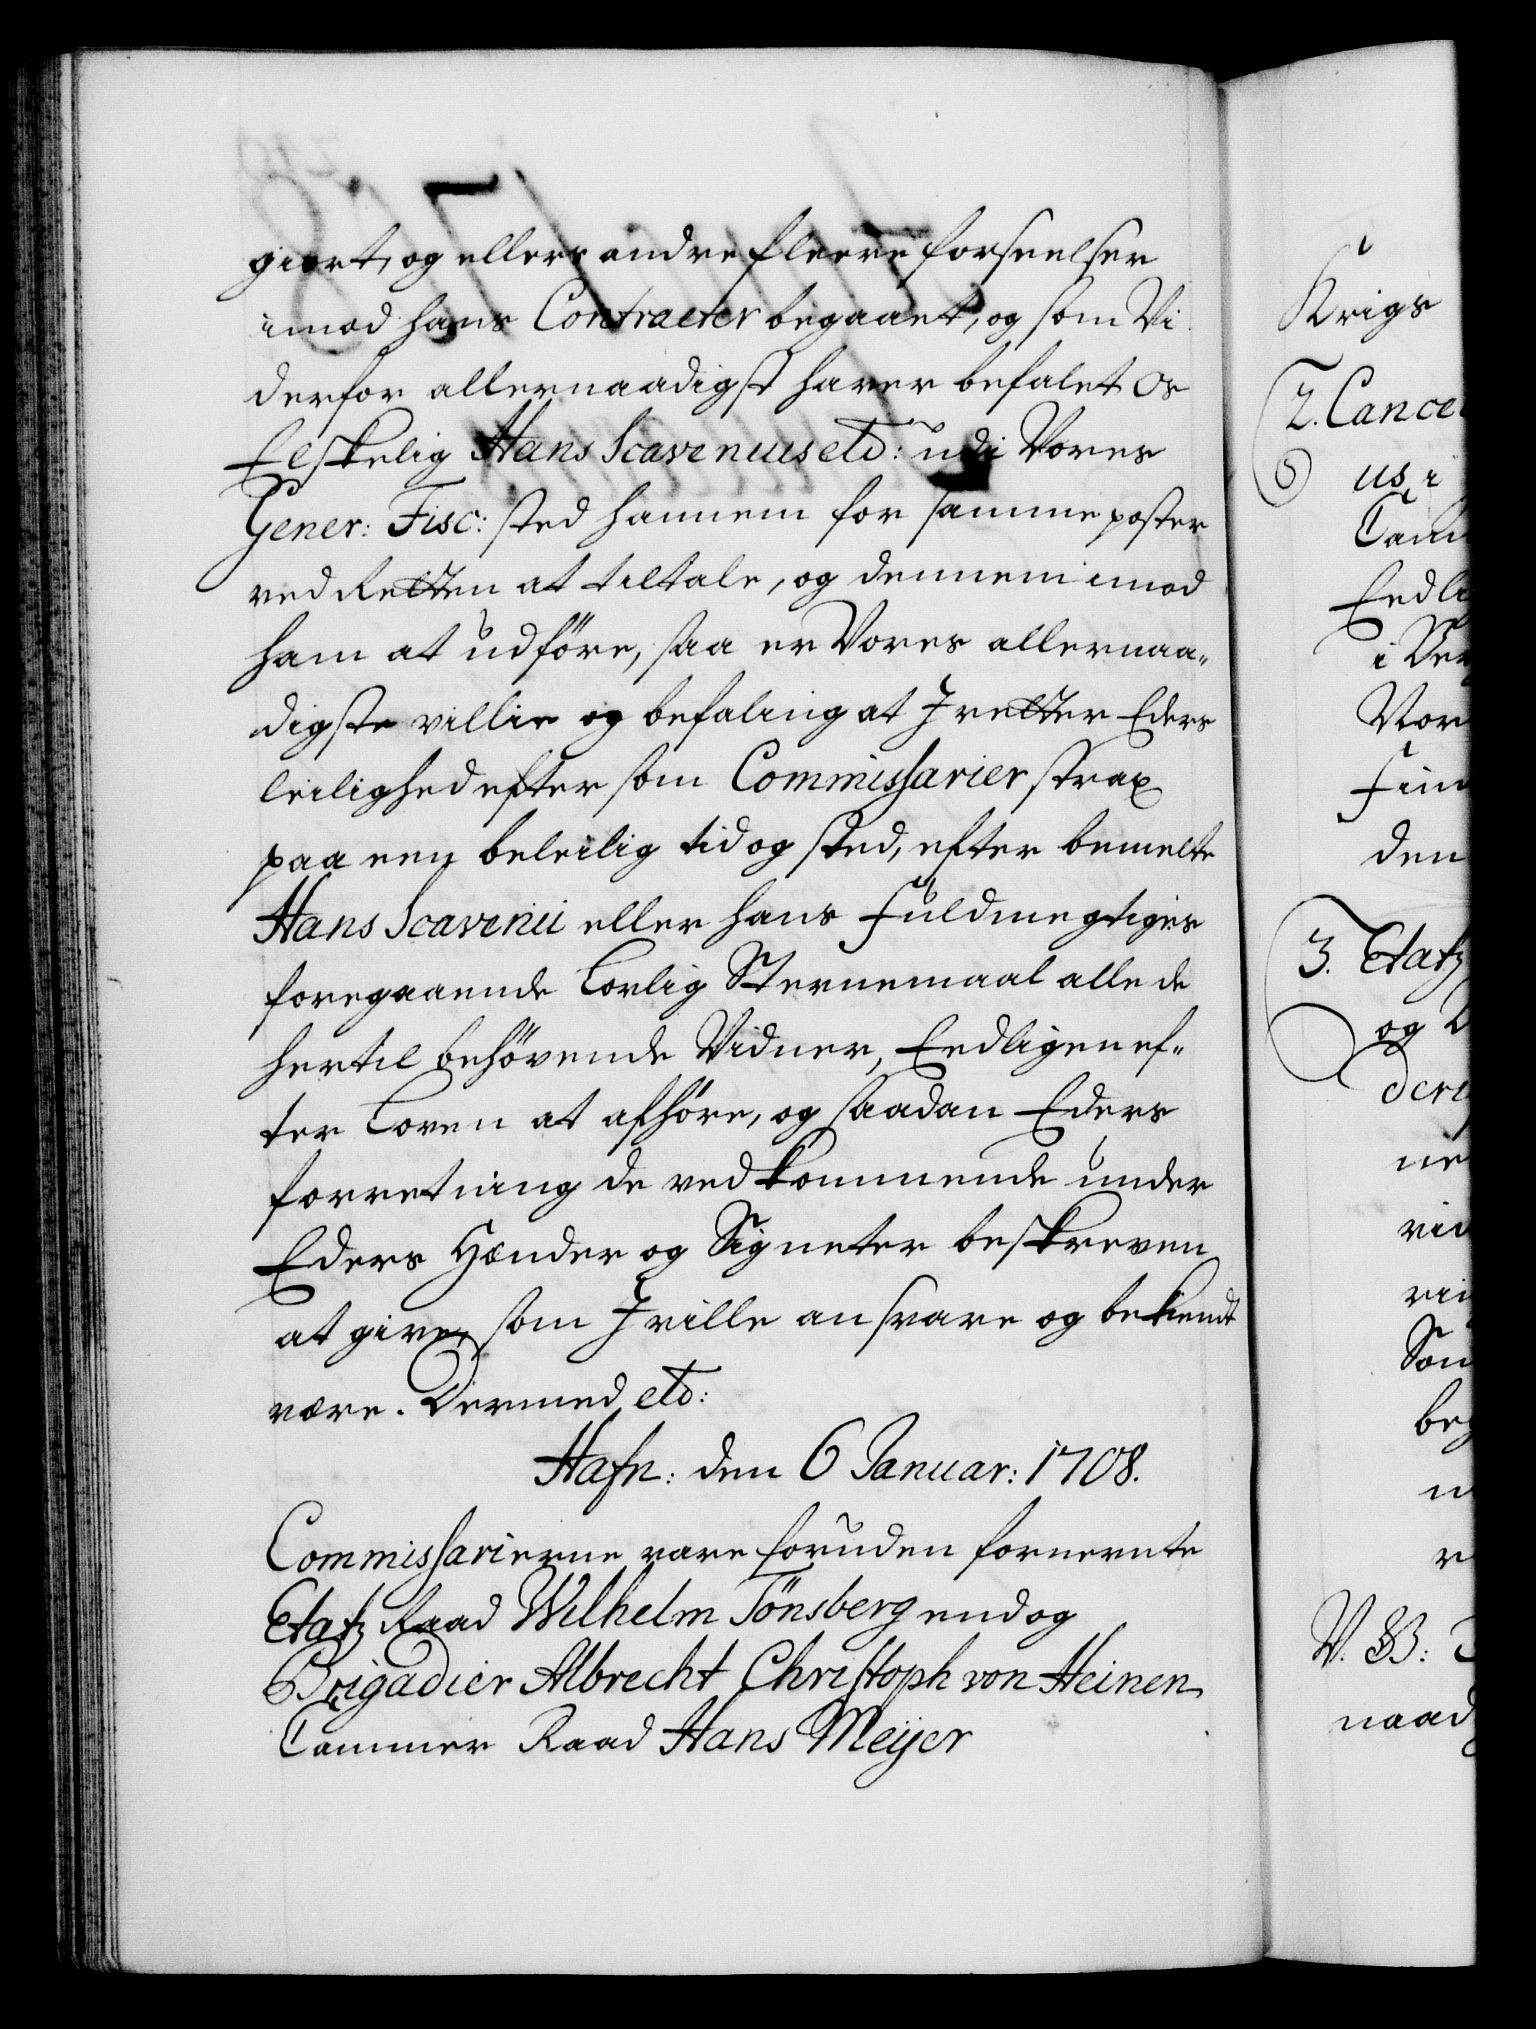 giort, og ellers andre fleere forseelser
imod hans Contracter begaaet, og som Vi
derfor allernaadigst haver befalet Os
Elskelig Hans Scavenius etc: udi Vores
Gener: Fisc: sted hannem for samme poster
ved Retten at tiltale, og dennem imod
ham at udføre, saa er Vores allernaa-
digste villie og befaling at I retter Eders
leilighed efter som Commissarier strax
paa een beleilig tid og sted, efter bemelte
Hans Scavenii eller hans Fuldmegtiges
foregaaende Lovlig Stevnemaal alle de
hertil behøvende Vidner, Eedligen ef-
ter Loven at afhøre, og saadan Eders
forretning de vedkommende under
Eders Hænder og Signeter beskreven
at give, som I ville ansvare og bekiendt
være. Dermed etc:
Hafn: den 6 Januar: 1708.
Commissarierne vare foruden fornevnte
Etatz Raad Wilhelm Tönsberg end og
Brigadier Albrecht Christoph von Heinen
Cammer Raad Hans Meijer
Krigs
2. Cance
us, i
Cam
Eedli
i Ver
Vor
den
3. Etatz
og D
ne
vid
Son
beg
naad